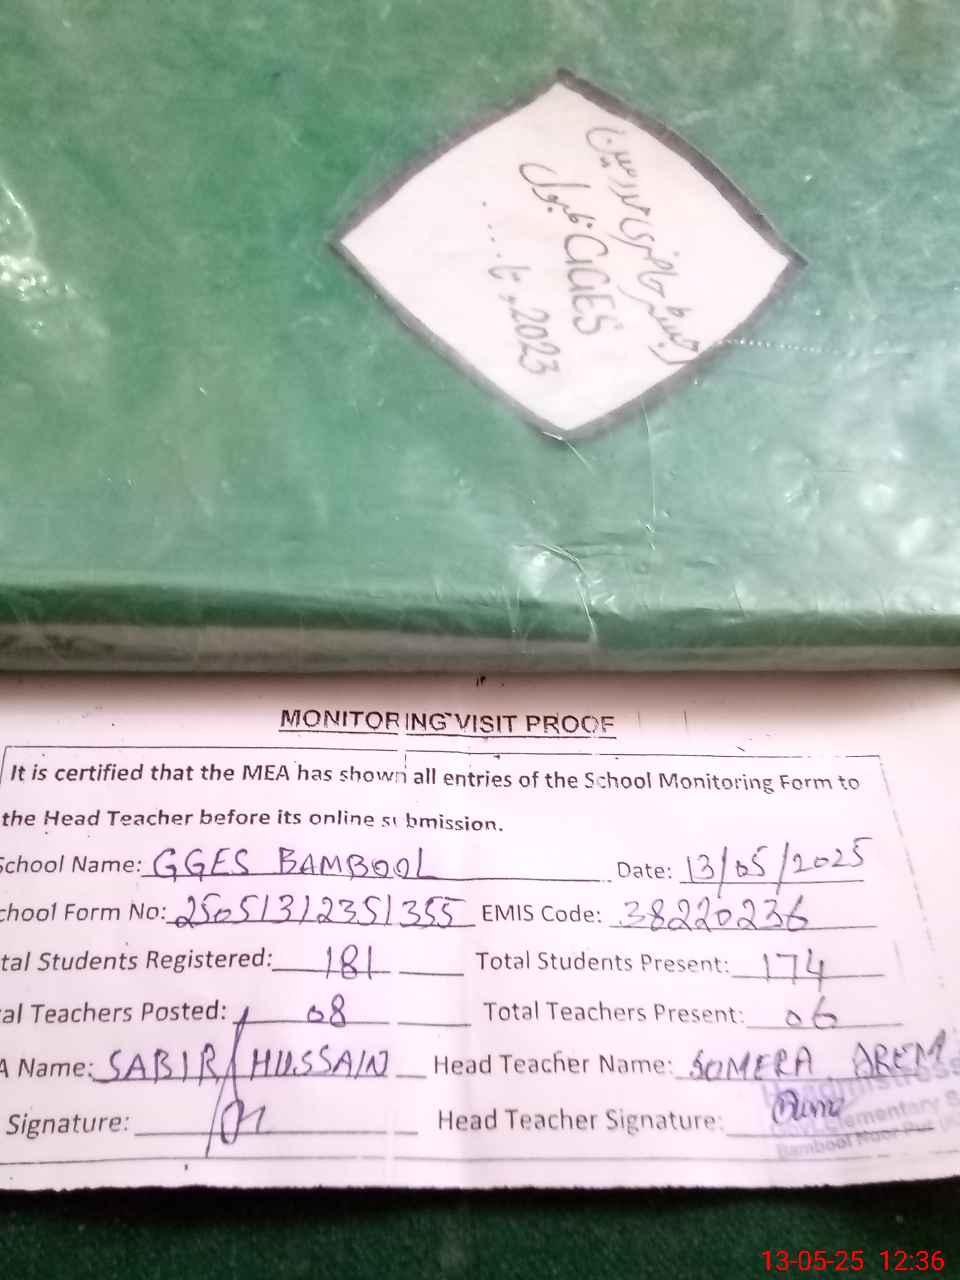 رجسٹر حاضری مدرسین
GGES بمبول
2023ء تا ....
MONITORING VISIT PROOF
It is certified that the MEA has shown all entries of the School Monitoring Form to
the Head Teacher before its online submission.
School Name: GGES BAMBOOL Date: 13/05/2025
chool Form No: 25051312351355 EMIS Code: 38220236
tal Students Registered: 181 Total Students Present: 174
al Teachers Posted: 08 Total Teachers Present: 06
A Name: SABIR HUSSAIN Head Teacher Name: SOMERA AREM
Signature: Head Teacher Signature:
Headmistress
Elementary S
Bambool Noor Pur
13-05-25 12:36